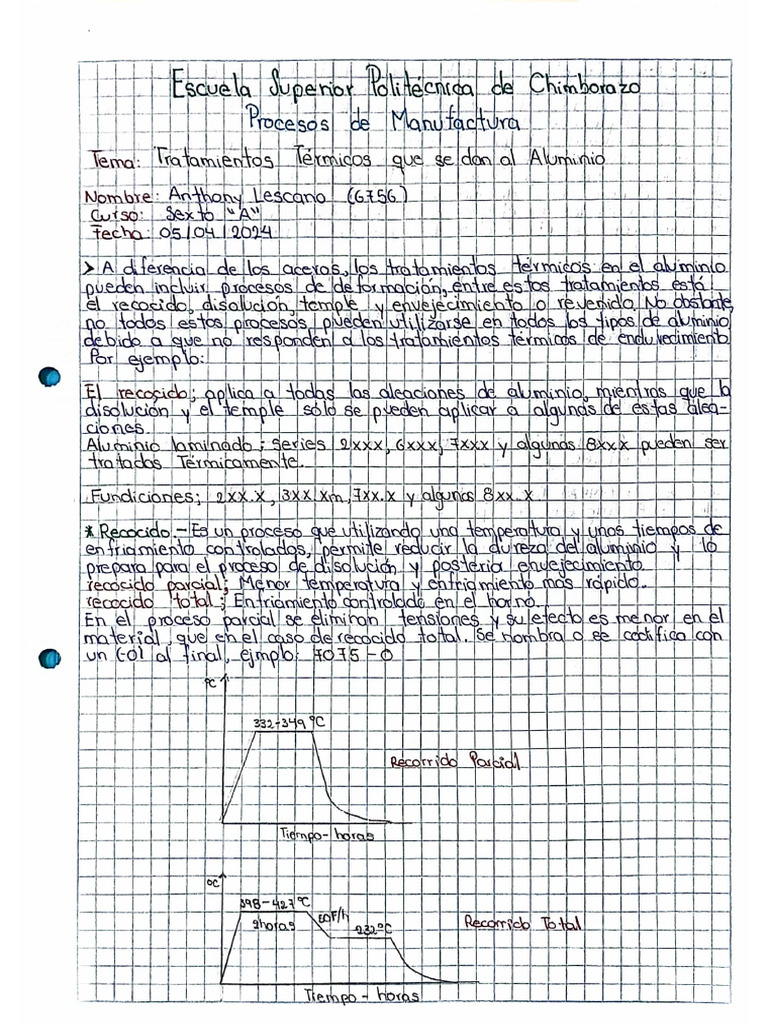 Escuela Superior Politécnica de Chimborazo
Procesos de Manufactura
Tema: Tratamientos Térmicos que se dan al Aluminio
Nombre: Anthony Lescano (6756)
Curso: Sexto "A"
Fecha: 05/04/2024
> A diferencia de los aceros, los tratamientos térmicos en el aluminio
pueden incluir procesos de deformación, entre estos tratamientos está
el recocido, disolución, temple y envejecimiento o revenido. No obstante,
no todos estos procesos pueden utilizarse en todos los tipos de aluminio
debido a que no responden a los tratamientos térmicos de endurecimiento
Por ejemplo:
El recocido; aplica a todas las aleaciones de aluminio, mientras que la
disolución y el temple sólo se pueden aplicar a algunas de estas alea-
ciones.
Aluminio laminado; series 2xxx, 6xxx, 7xxx y algunas 8xxx pueden ser
tratados Térmicamente.
Fundiciones; 2xx.x, 3xx.xm, 7xx.x y algunas 8xx.x
* Recocido.- Es un proceso que utilizando una temperatura y unos tiempos de
enfriamiento controlados, permite reducir la dureza del aluminio y lo
prepara para el proceso de disolución y posteria envejecimiento.
recocido parcial; Menor temperatura y enfriamiento más rápido.
recocido total; Enfriamiento controlado en el horno.
En el proceso parcial se eliminan tensiones y su efecto es menor en el
material, que en el caso de recocido total. Se nombra o se codifica con
un (-0) al final, ejmplo: 7075-0
°C
332-349 °C
Recorrido Parcial
Tiempo-horas
°C
398-427 °C
2horas
50F/h
232°C
Recorrido Total
Tiempo-horas